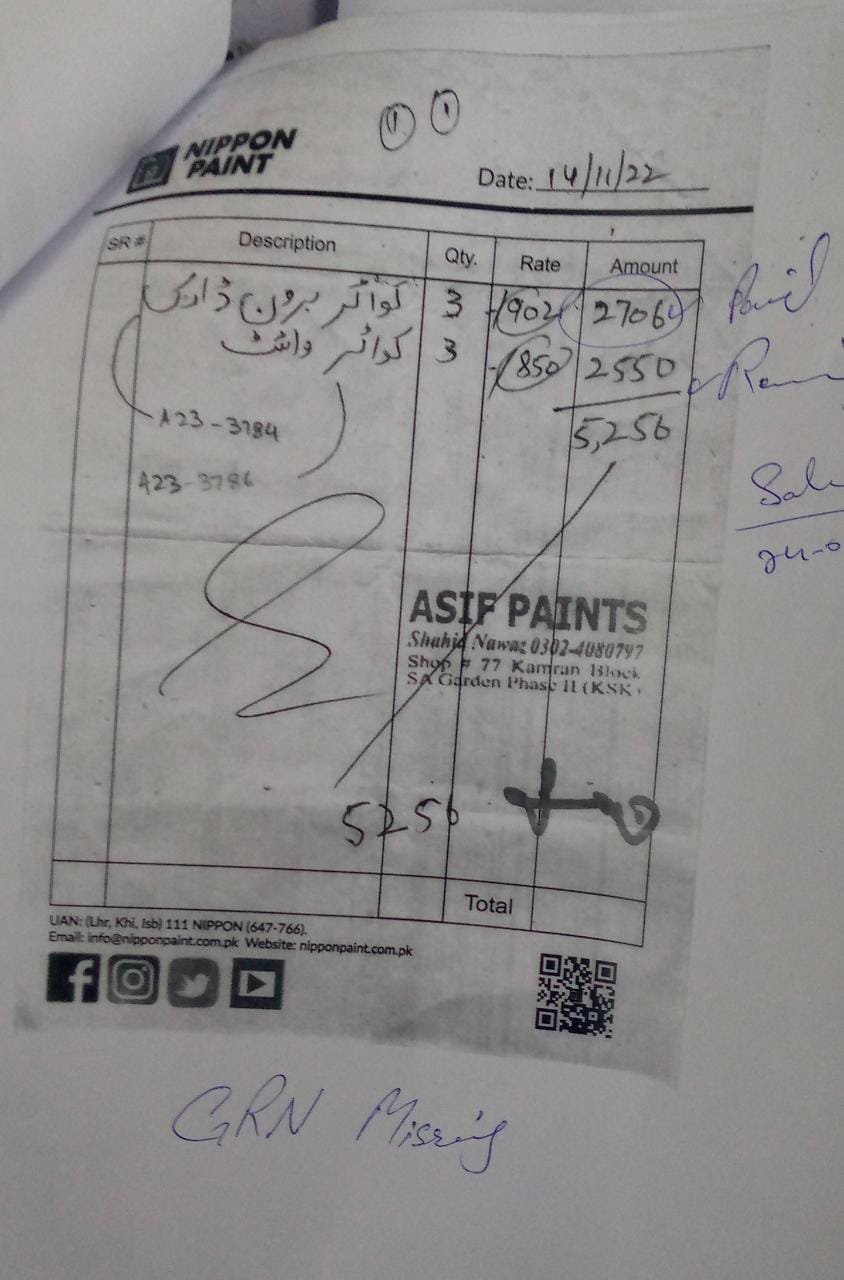 ① ①
NIPPON
PAINT
Date: 14/11/22
SR # Description Qty. Rate Amount
کواٹر برون ڈارک 3 902 2706 Paid
کواٹر وائٹ 3 850 2550
5,256
A23-3784
A23-3786
ASIF PAINTS
Shahid Nawaz 0302-4080797
Shop # 77 Kamran Block
SA Garden Phase II (KSK)
5256
Total
UAN: (Lhr, Khi, Isb) 111 NIPPON (647-766).
Email: info@nipponpaint.com.pk Website: nipponpaint.com.pk
GRN Missing